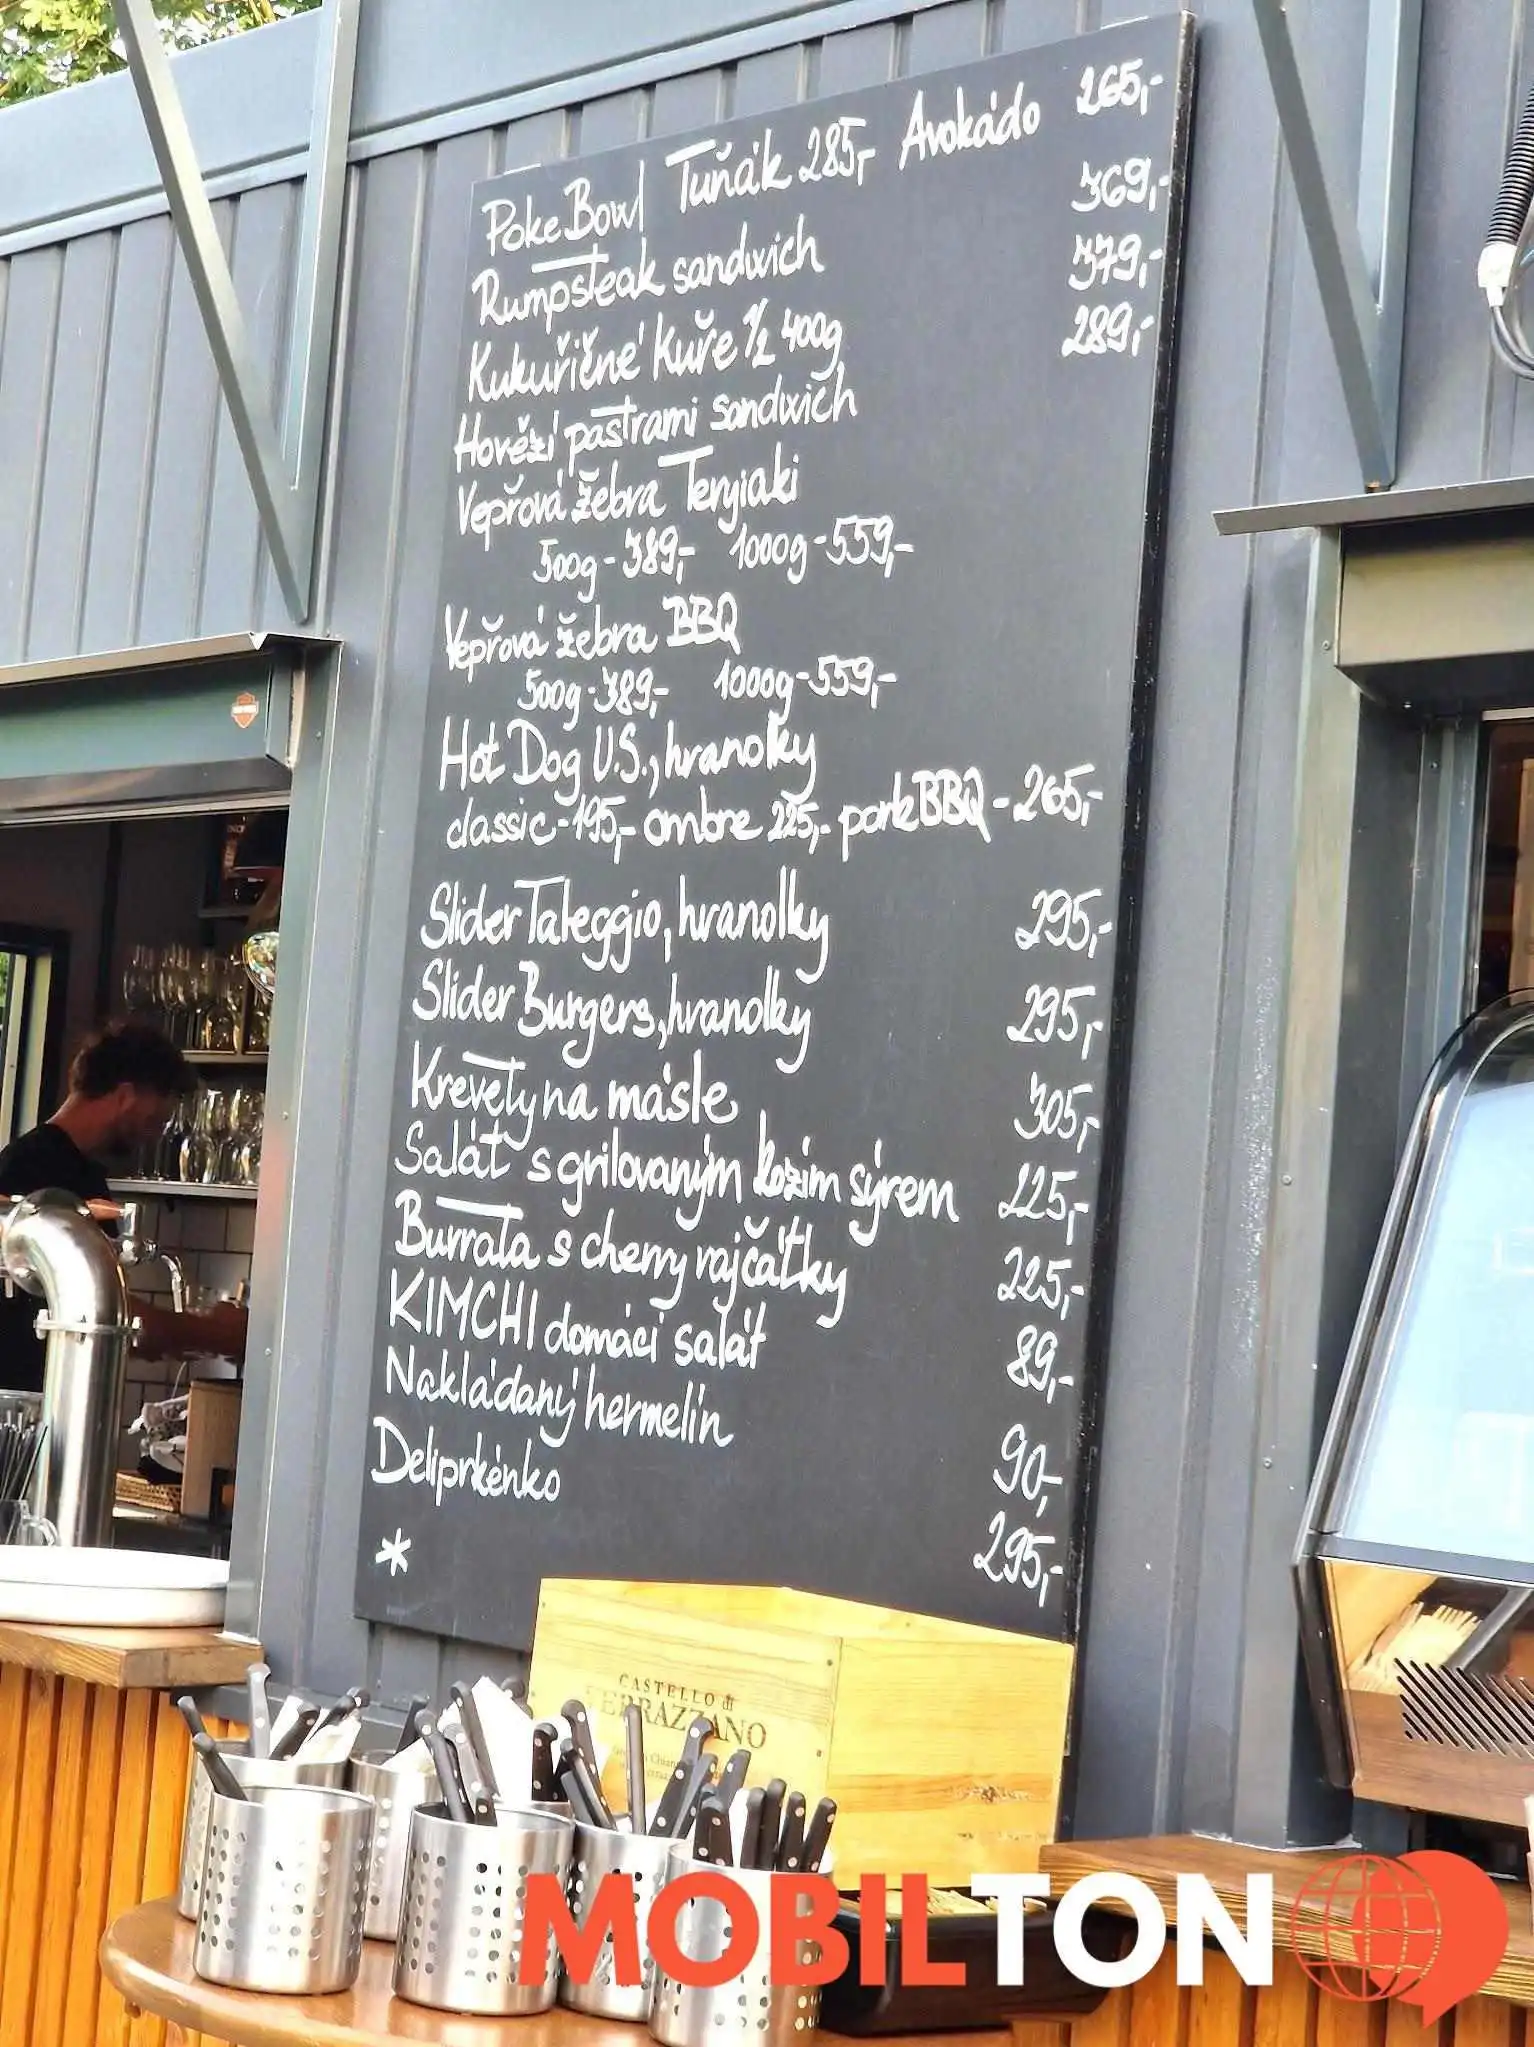 Poke Bowl Tuňák 285,- Avokádo 265,-
Rumpsteak sandwich 369,-
Kukuřičné kuře 1/2 400g 379,-
Hovězí pastrami sandwich 289,-
Vepřová žebra Teryiaki
500g - 389,- 1000g - 559,-
Vepřová žebra BBQ
500g - 389,- 1000g - 559,-
Hot Dog U.S., hranolky
classic - 195,- ombre 225,- pork BBQ - 265,-
Slider Taleggio, hranolky 295,-
Slider Burgers, hranolky 295,-
Krevety na másle 305,-
Salát s grilovaným kozím sýrem 225,-
Burrata s cherry rajčátky 225,-
KIMCHI domácí salát 89,-
Nakládaný hermelín 90,-
Deliprkénko 295,-
*
CASTELLO di
VERRAZZANO
MOBILTON